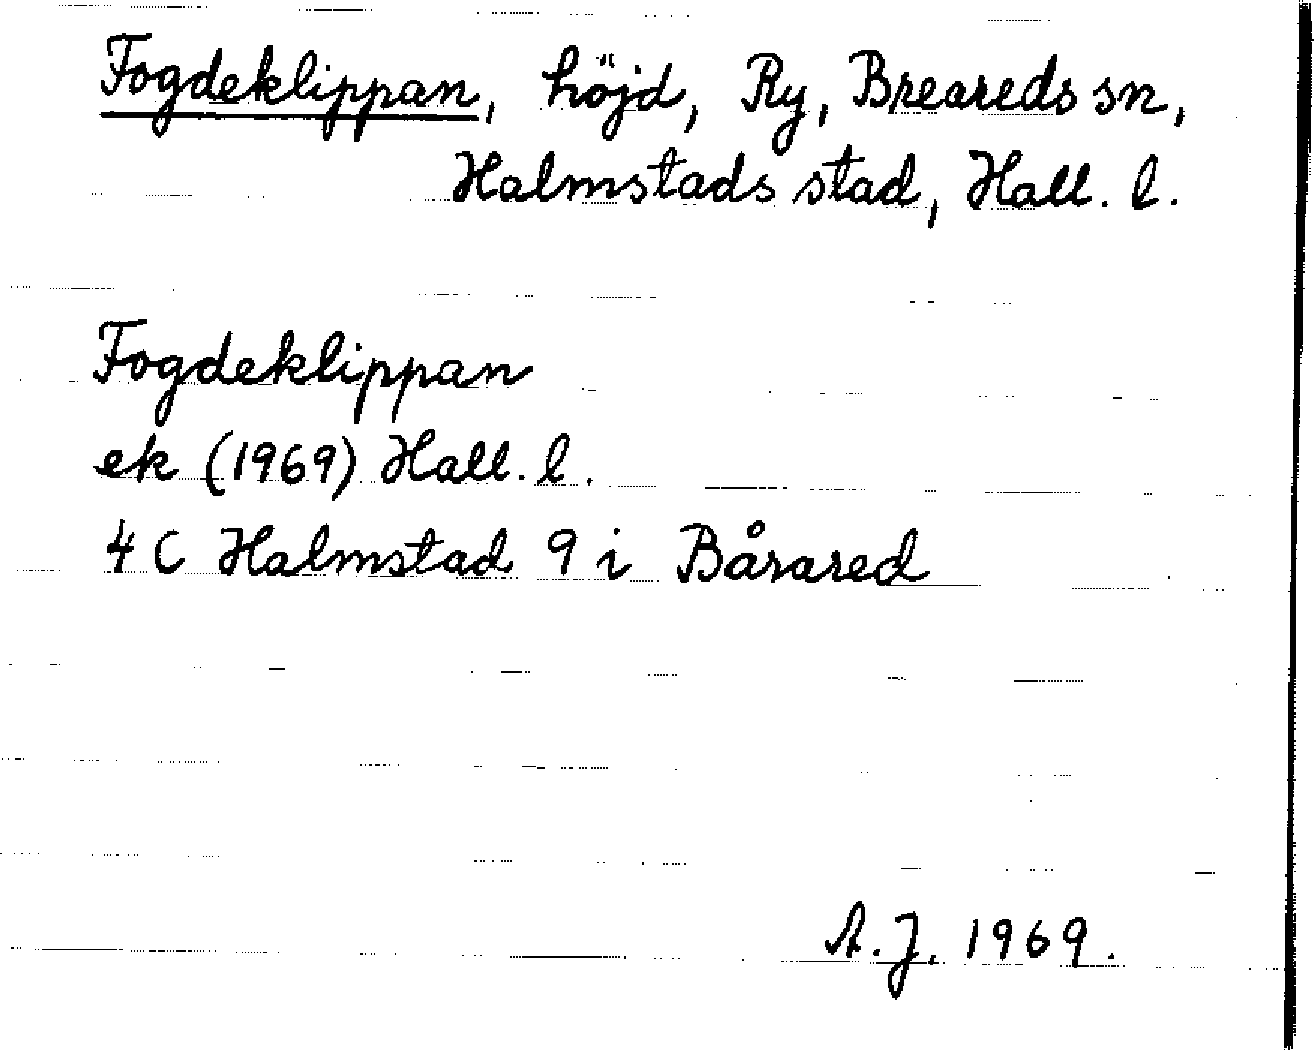 Fogdeklippan, höjd, Ry, Breareds sn,
Halmstads stad, Hall. l.
Fogdeklippan
ek (1969) Hall. l.
4 C Halmstad 9 i Bårared
A.J. 1969.